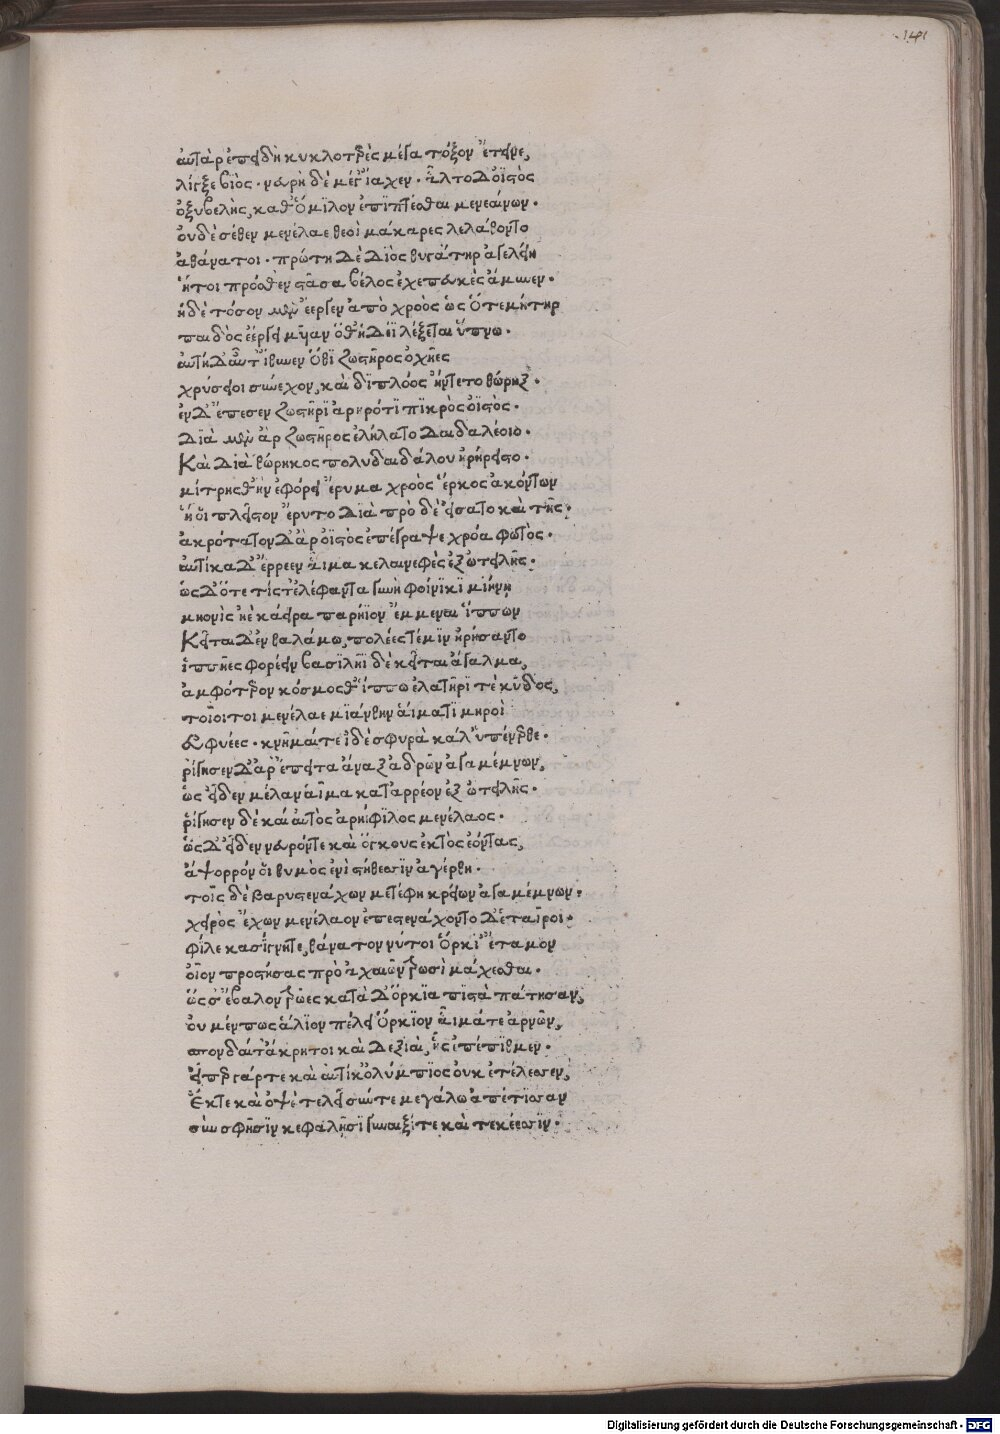 141
αὐτὰρ ἐπειδὴ κυκλοτερὲς μέγα τόξον ἔτεινε,
λίγξε βιὸς· νευρὴ δὲ μέγ' ἴαχεν· ἆλτο δ' ὀϊστὸς
ὀξυβελὴς, καθ' ὅμιλον ἐπιπτέσθαι μενεαίνων·
οὐδὲ σέθεν μενέλαε θεοὶ μάκαρες λελάθοντο
ἀθάνατοι· πρώτη δὲ Διὸς θυγάτηρ ἀγελείη
ἥτοι πρόσθεν στᾶσα βέλος ἐχεπευκὲς ἄμυνεν·
ἡ δὲ τόσον μὲν ἔεργεν ἀπὸ χροὸς ὡς ὅτε μήτηρ
παιδὸς ἐέργει μυῖαν ὅθ' ἡδέϊ λέξεται ὕπνω·
αὐτὴ δ' αὖτ' ἴθυνεν ὅθι ζωστῆρος ὀχῆες
χρύσειοι σύνεχον, καὶ διπλόος ἤντετο θώρηξ·
ἐν δ' ἔπεσεν ζωστῆρι ἀρηρότι πικρὸς ὀϊστὸς·
διὰ μὲν ἂρ ζωστῆρος ἐλήλατο δαιδαλέοιο·
Καὶ διὰ θώρηκος πολυδαιδάλου ἠρήρειστο·
μίτρης θ' ἣν ἐφόρει ἔρυμα χροὸς ἕρκος ἀκόντων
ἥ οἱ πλεῖστον ἔρυτο διὰ πρὸ δὲ εἴσατο καὶ τῆς·
ἀκρότατον δ' ἂρ ὀϊστὸς ἐπέγραψε χρόα φωτὸς·
αὐτίκα δ' ἔρρεεν αἷμα κελαινεφὲς ἐξ ὠτειλῆς·
ὡς δ' ὅτε τίς τ' ἐλέφαντα γυνὴ φοίνικι μιήνη
μηονὶς ἠὲ κάειρα παρήϊον ἔμμεναι ἵππων
Κεῖται δ' ἐν θαλάμω, πολέες τέ μιν ἠρήσαντο
ἱππῆες φορέειν βασιλῆϊ δὲ κεῖται ἄγαλμα,
ἀμφότερον κόσμος θ' ἵππω ἐλατῆρί τε κῦδος,
τοῖοι τοι μενέλαε μιάνθην αἵματι μηροὶ
εὐφυέες· κνῆμαί τε ἰδὲ σφυρὰ κάλ' ὑπένερθε·
ῥίγησεν δ' ἂρ ἔπειτα ἄναξ ἀνδρῶν ἀγαμέμνων,
ὡς εἶδεν μέλαν αἷμα καταρρέον ἐξ ὠτειλῆς·
ῥίγησεν δὲ καὶ αὐτὸς ἀρηίφιλος μενέλαος·
ὡς δ' εἶδεν νευρόντε καὶ ὄγκους ἐκτὸς ἐόντας,
ἄψορρόν οἱ θυμὸς ἐνὶ στήθεσσιν ἀγέρθη·
τοῖς δὲ βαρυστενάχων μετέφη κρείων ἀγαμέμνων·
χειρὸς ἔχων μενέλαον ἐπεστενάχοντο δ' ἑταῖροι·
φίλε κασίγνητε, θάνατον νύ τοι ὅρκι' ἔταμον
οἶον προστήσας πρὸ ἀχαιῶν τρωσὶ μάχεσθαι·
ὥς σ' ἔβαλον τρῶες κατὰ δ' ὅρκια πιστὰ πάτησαν,
οὐ μέν πως ἅλιον πέλει ὅρκιον αἷμά τε ἀρνῶν,
σπονδαί τ' ἄκρητοι καὶ δεξιαὶ, ᾗς ἐπέπιθμεν·
εἴπερ γάρ τε καὶ αὐτίκ' ὀλύμπιος οὐκ ἐτέλεσσεν,
Ἔκ τε καὶ ὀψὲ τελεῖ σύν τε μεγάλω ἀπέτισσαν
σὺν σφῆσιν κεφαλῆσι γυναιξί τε καὶ τεκέεσσιν·
Digitalisierung gefördert durch die Deutsche Forschungsgemeinschaft - DFG